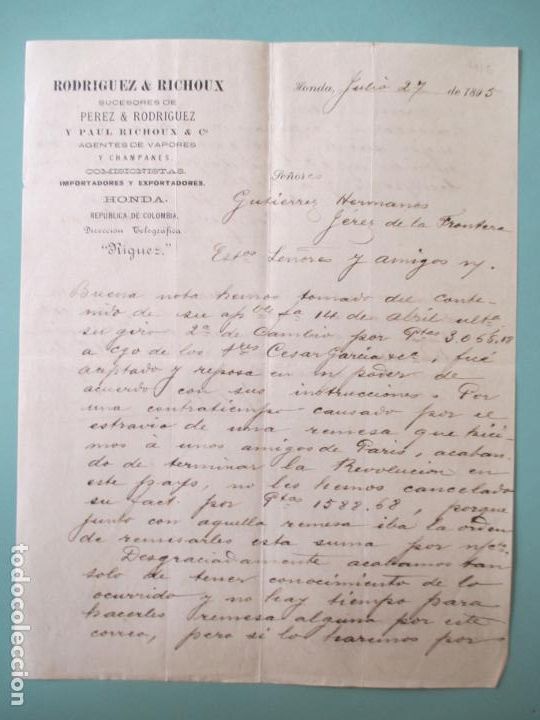 RODRIGUEZ & RICHOUX
SUCESORES DE
PEREZ & RODRIGUEZ
Y PAUL RICHOUX & Cº
AGENTES DE VAPORES
Y CHAMPANES.
COMISIONISTAS.
IMPORTADORES Y EXPORTADORES.
HONDA.
REPUBLICA DE COLOMBIA.
Direccion Telegráfica
"Riguez."
Honda, Julio 27 de 1895
Señores
Gutiérrez Hermanos
Jérez de la Frontera
Estos Señores y amigos ns.
Buena nota hemos tomado del conte-
nido de su apble fa 14 de abril ulto
su giro 2a de Cambio por Ptas 3.056,18
a cgo de los Sres Cesar Garcia & ca, fué
aceptado y reposa en n poder de
acuerdo con sus instrucciones. Por
una contratiempo causado por el
estravio de una remesa que hici-
mos à unos amigos de Paris, acaban-
do de terminar la Revolucion en
este pays, no les hemos cancelado
su fact por Ptas 1588.68, porque
junto con aquella remesa iba la orden
de remesarles esta suma por n/cta.
Desgraciadamente acabamos tan
solo de tener conocimiento de lo
ocurrido y no hay tiempo para
hacerles remesa alguna por este
correo, pero si lo haremos por
todocoleccion